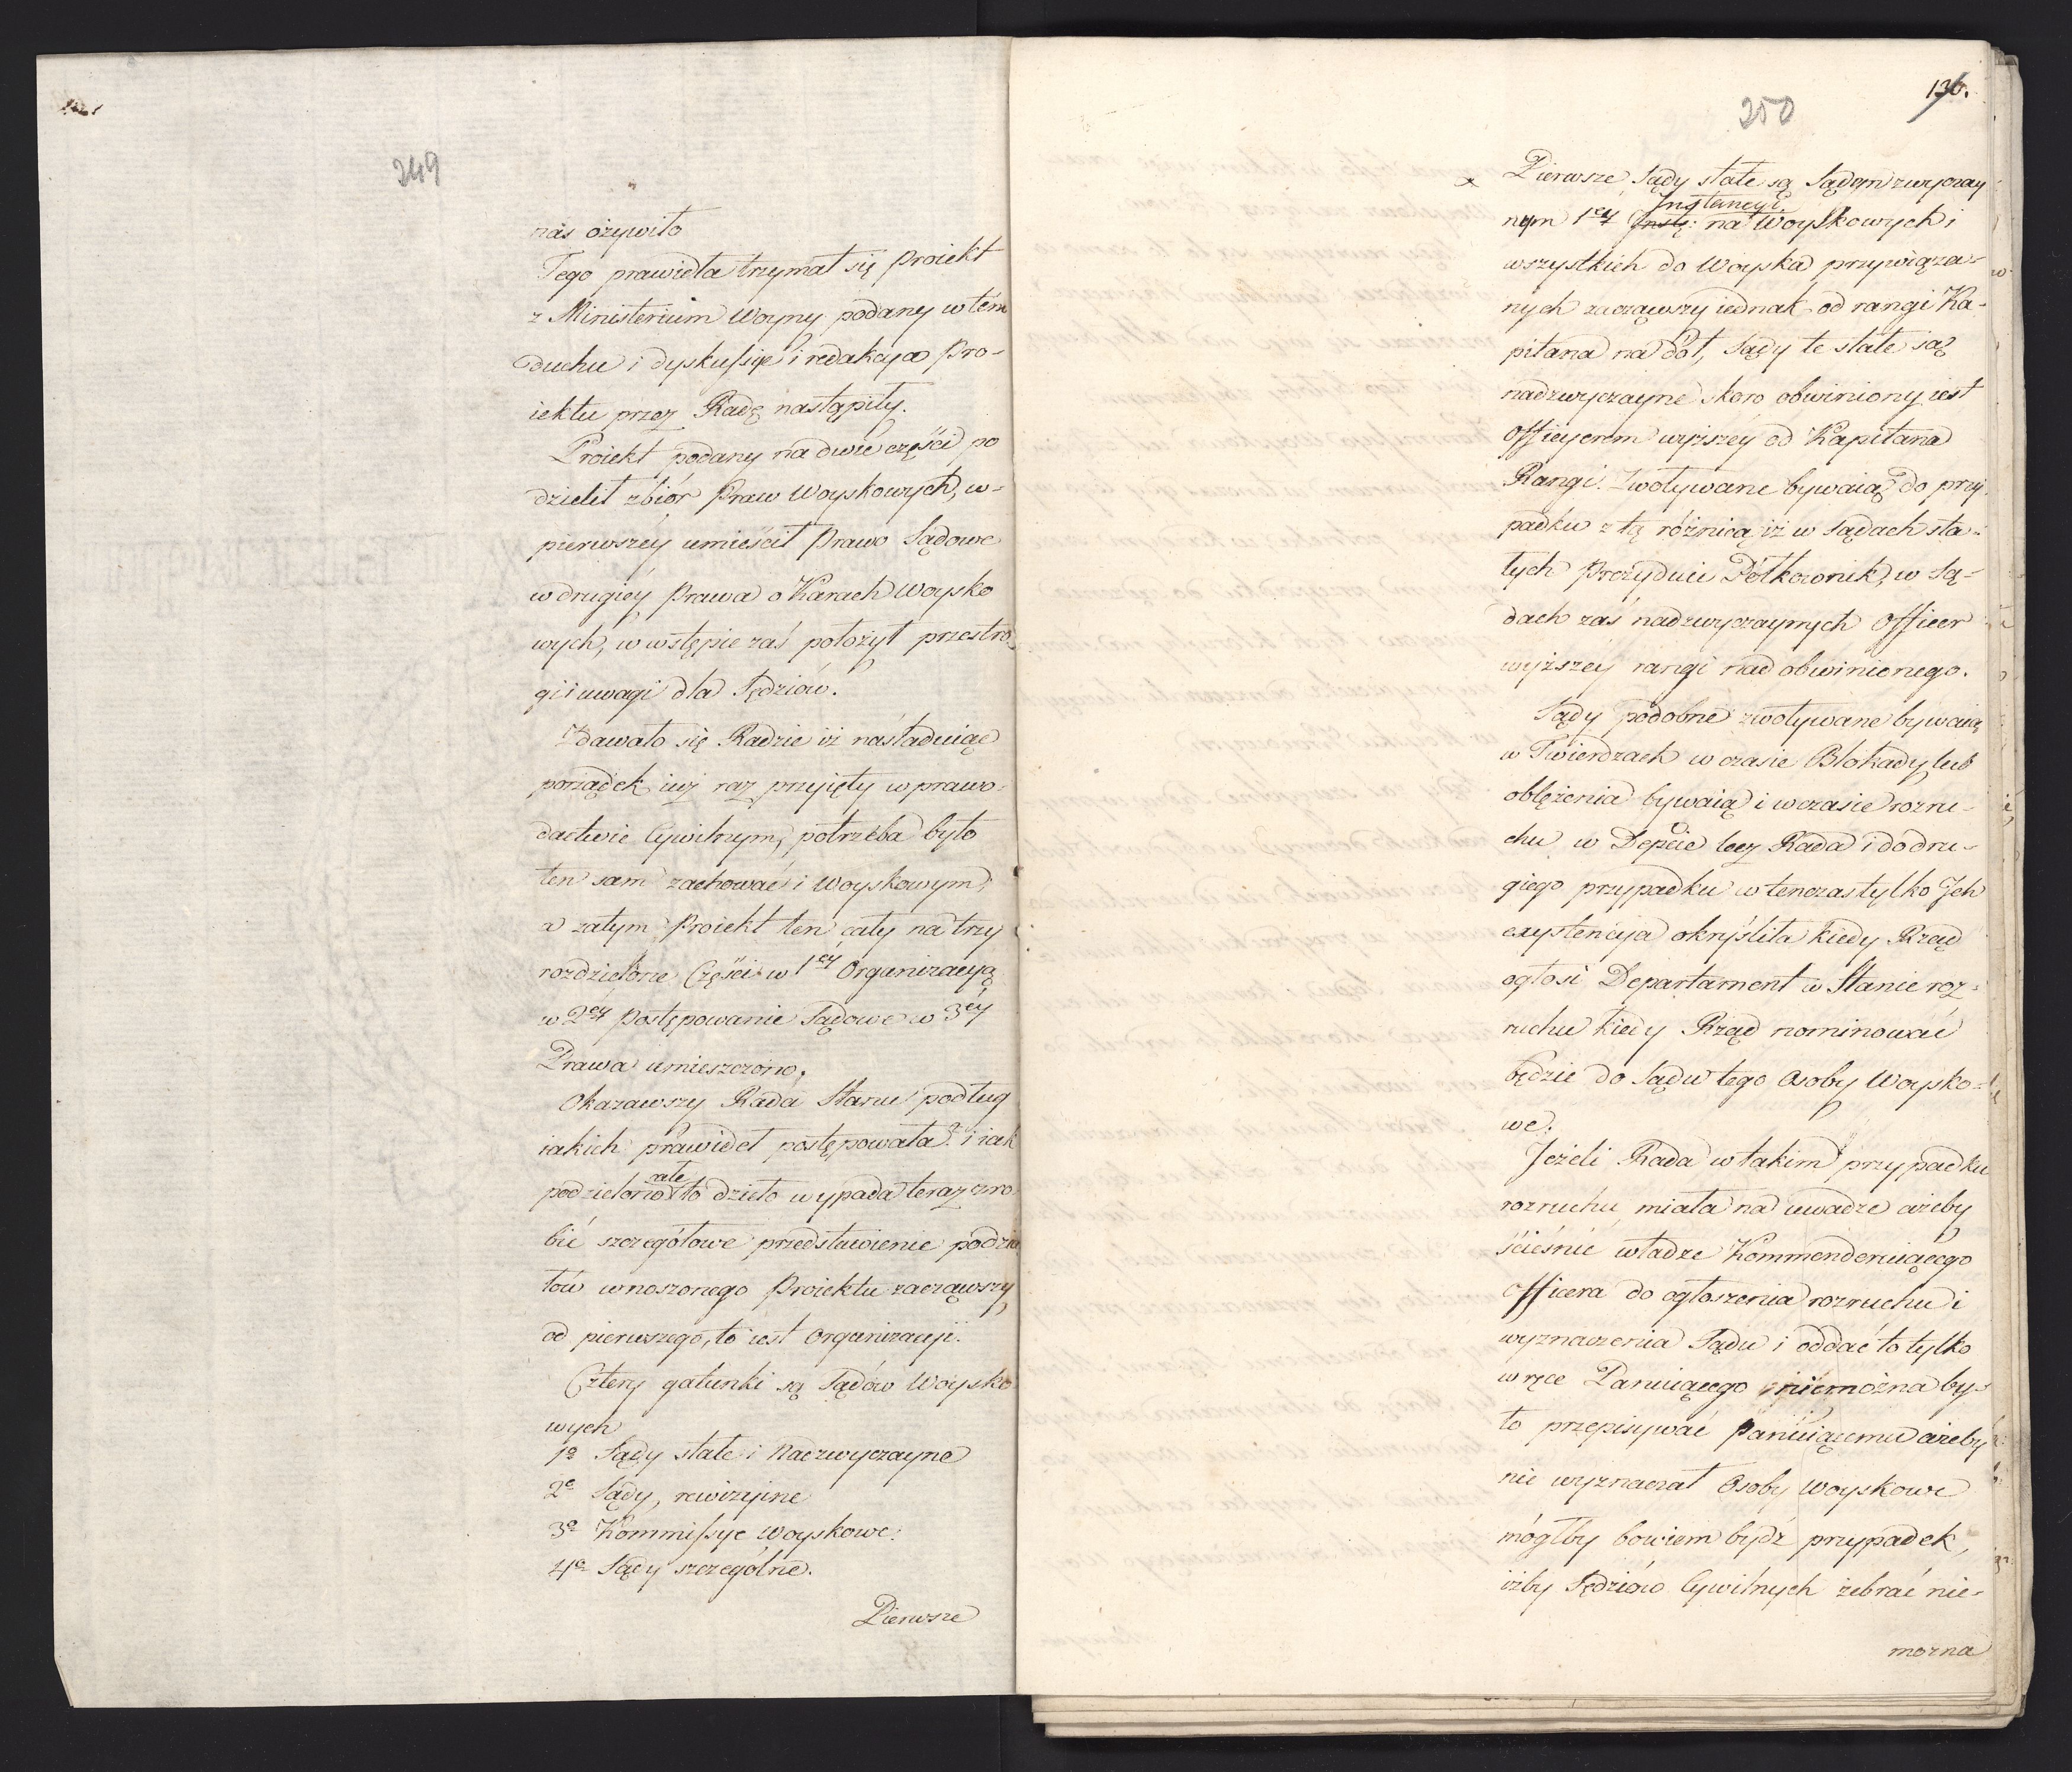 249
nas ożywiło
Tego prawidła trzymał się Proiekt
z Ministerium Woyny podany w tém
duchu i dyskussye i redakcya Pro-
iektu przez Radę nastąpiły.
Proiekt podany na dwie części po
dzielił zbiór Praw Woyskowych, w-
pierwszéy umieścił Prawo Sądowe
w drugiéy Prawa o Karach Woysko
wych, w wstępie zaś położył przestro
gi i uwagi dla Sędziów.
Zdawało się Radzie iż nasladuiąc
porządek iuż raz przyięty w prawo-
dactwie Cywilnym, potrzeba było
ten sam zachować i Woyskowym,
a zatym Proiekt ten cały na trzy
rozdzielone Części w 1éy Organizacyą
w 2éy Postępowanie Sądowe w 3éy
Prawa umieszczono.
Okazawszy Rada Stanu podług
iakich prawideł postępowała i iak
całe
podzielono to dzieło wypada teraz zro
bić szczegółowe przedstawienie podzia
łów wnoszonego Proiektu zacząwszy
od pierwszego, to iest Organizacyi.
Cztery gatunki są Sądów Woysko
wych
1e Sądy stałe i Nadzwyczayne
2e Sądy, rewizyine
3e Kommissye Woyskowe.
4e Sądy szczególne.
Pierwsze
136.
250
x Pierwsze Sądy stałe są Sądem zwyczay
Instancyi
nym 1éy Instę: na Woyskowych i
wszystkich do Woyska przywiąza-
nych zacząwszy iednak od rangi Ka-
pitana na dół, Sądy te stałe są
nadzwyczayne skoro obwiniony iest
Officyerem wyższéy od Kapitana
Rangi. Zwoływane bywaią do przy
padku z tą różnicą iż w Sądach sta-
łych Prezyduie Półkownik, w Są-
dach zaś nadzwyczaynych Officer
wyższey rangi nad obwinionego.
Sądy podobne zwoływane bywaią
w Twierdzach w czasie Blokady lub
oblężenia bywaią i w czasie rozru-
chu w Depcie lecz Rada i do dru-
giego przypadku w tenczas tylko Ich
exystencya okryśliła kiedy Rząd
ogłosi Departament w Stanie roz-
ruchu kiedy Rząd nominować
będzie do Sądu tego Osoby Woysko-
we.
Jeżeli Rada w takim przypadku
rozruchu miała na uwadze ażeby
ścieśnić władze Kommenderuiącego
Officera do ogłoszenia rozruchu i
wyznaczenia Sądu i oddać to tylko
w ręce Panuiącego niemożna by-
ło przepisywać Panuiącemu ażeby
nie wyznaczał Osoby Woyskowe
mógłby bowiem bydź przypadek,
iżby Sędziów Cywilnych zebrać nie-
można